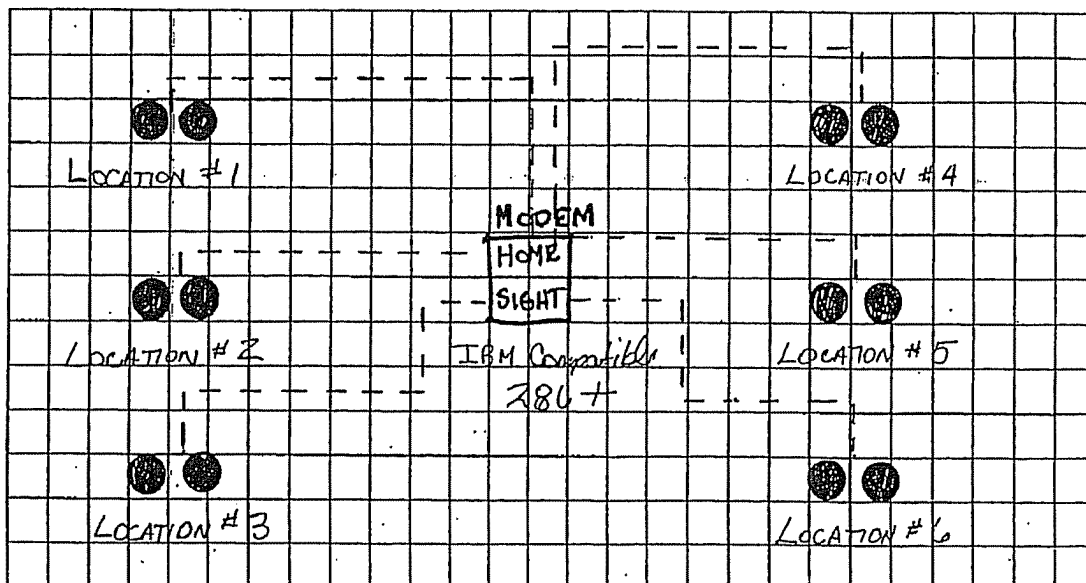 LOCATION #1
LOCATION #4
MODEM
HOME
SIGHT
LOCATION #2
IBM Compatible
286+
LOCATION #5
LOCATION #3
LOCATION #6